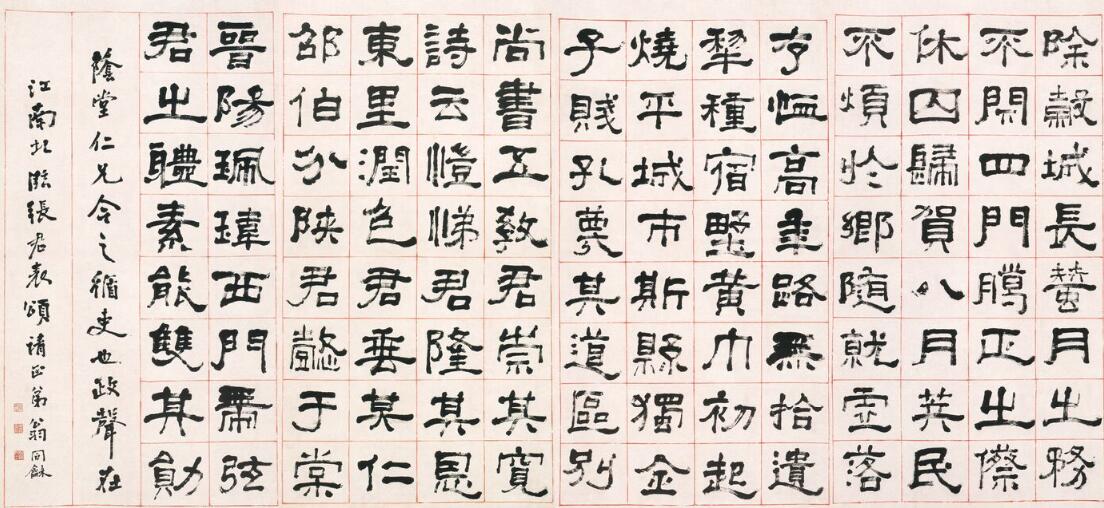 除穀城長蠶月之務
不閉四門臘正之傺
休囚歸賀八月筭民
不煩於鄉隨就虛落
存恤高年路無拾遺
犁種宿野黃巾初起
燒平城市斯縣獨全
子賤孔蔑其道區別
尚書五教君崇其寬
詩云愷悌君隆其恩
東里潤色君垂其仁
邵伯分陝君懿于棠
晉陽珮瑋西門帶弦
君之體素能雙其勛
蔭堂仁兄今之循吏也政聲在
江南北臨張君表頌請正弟翁同龢